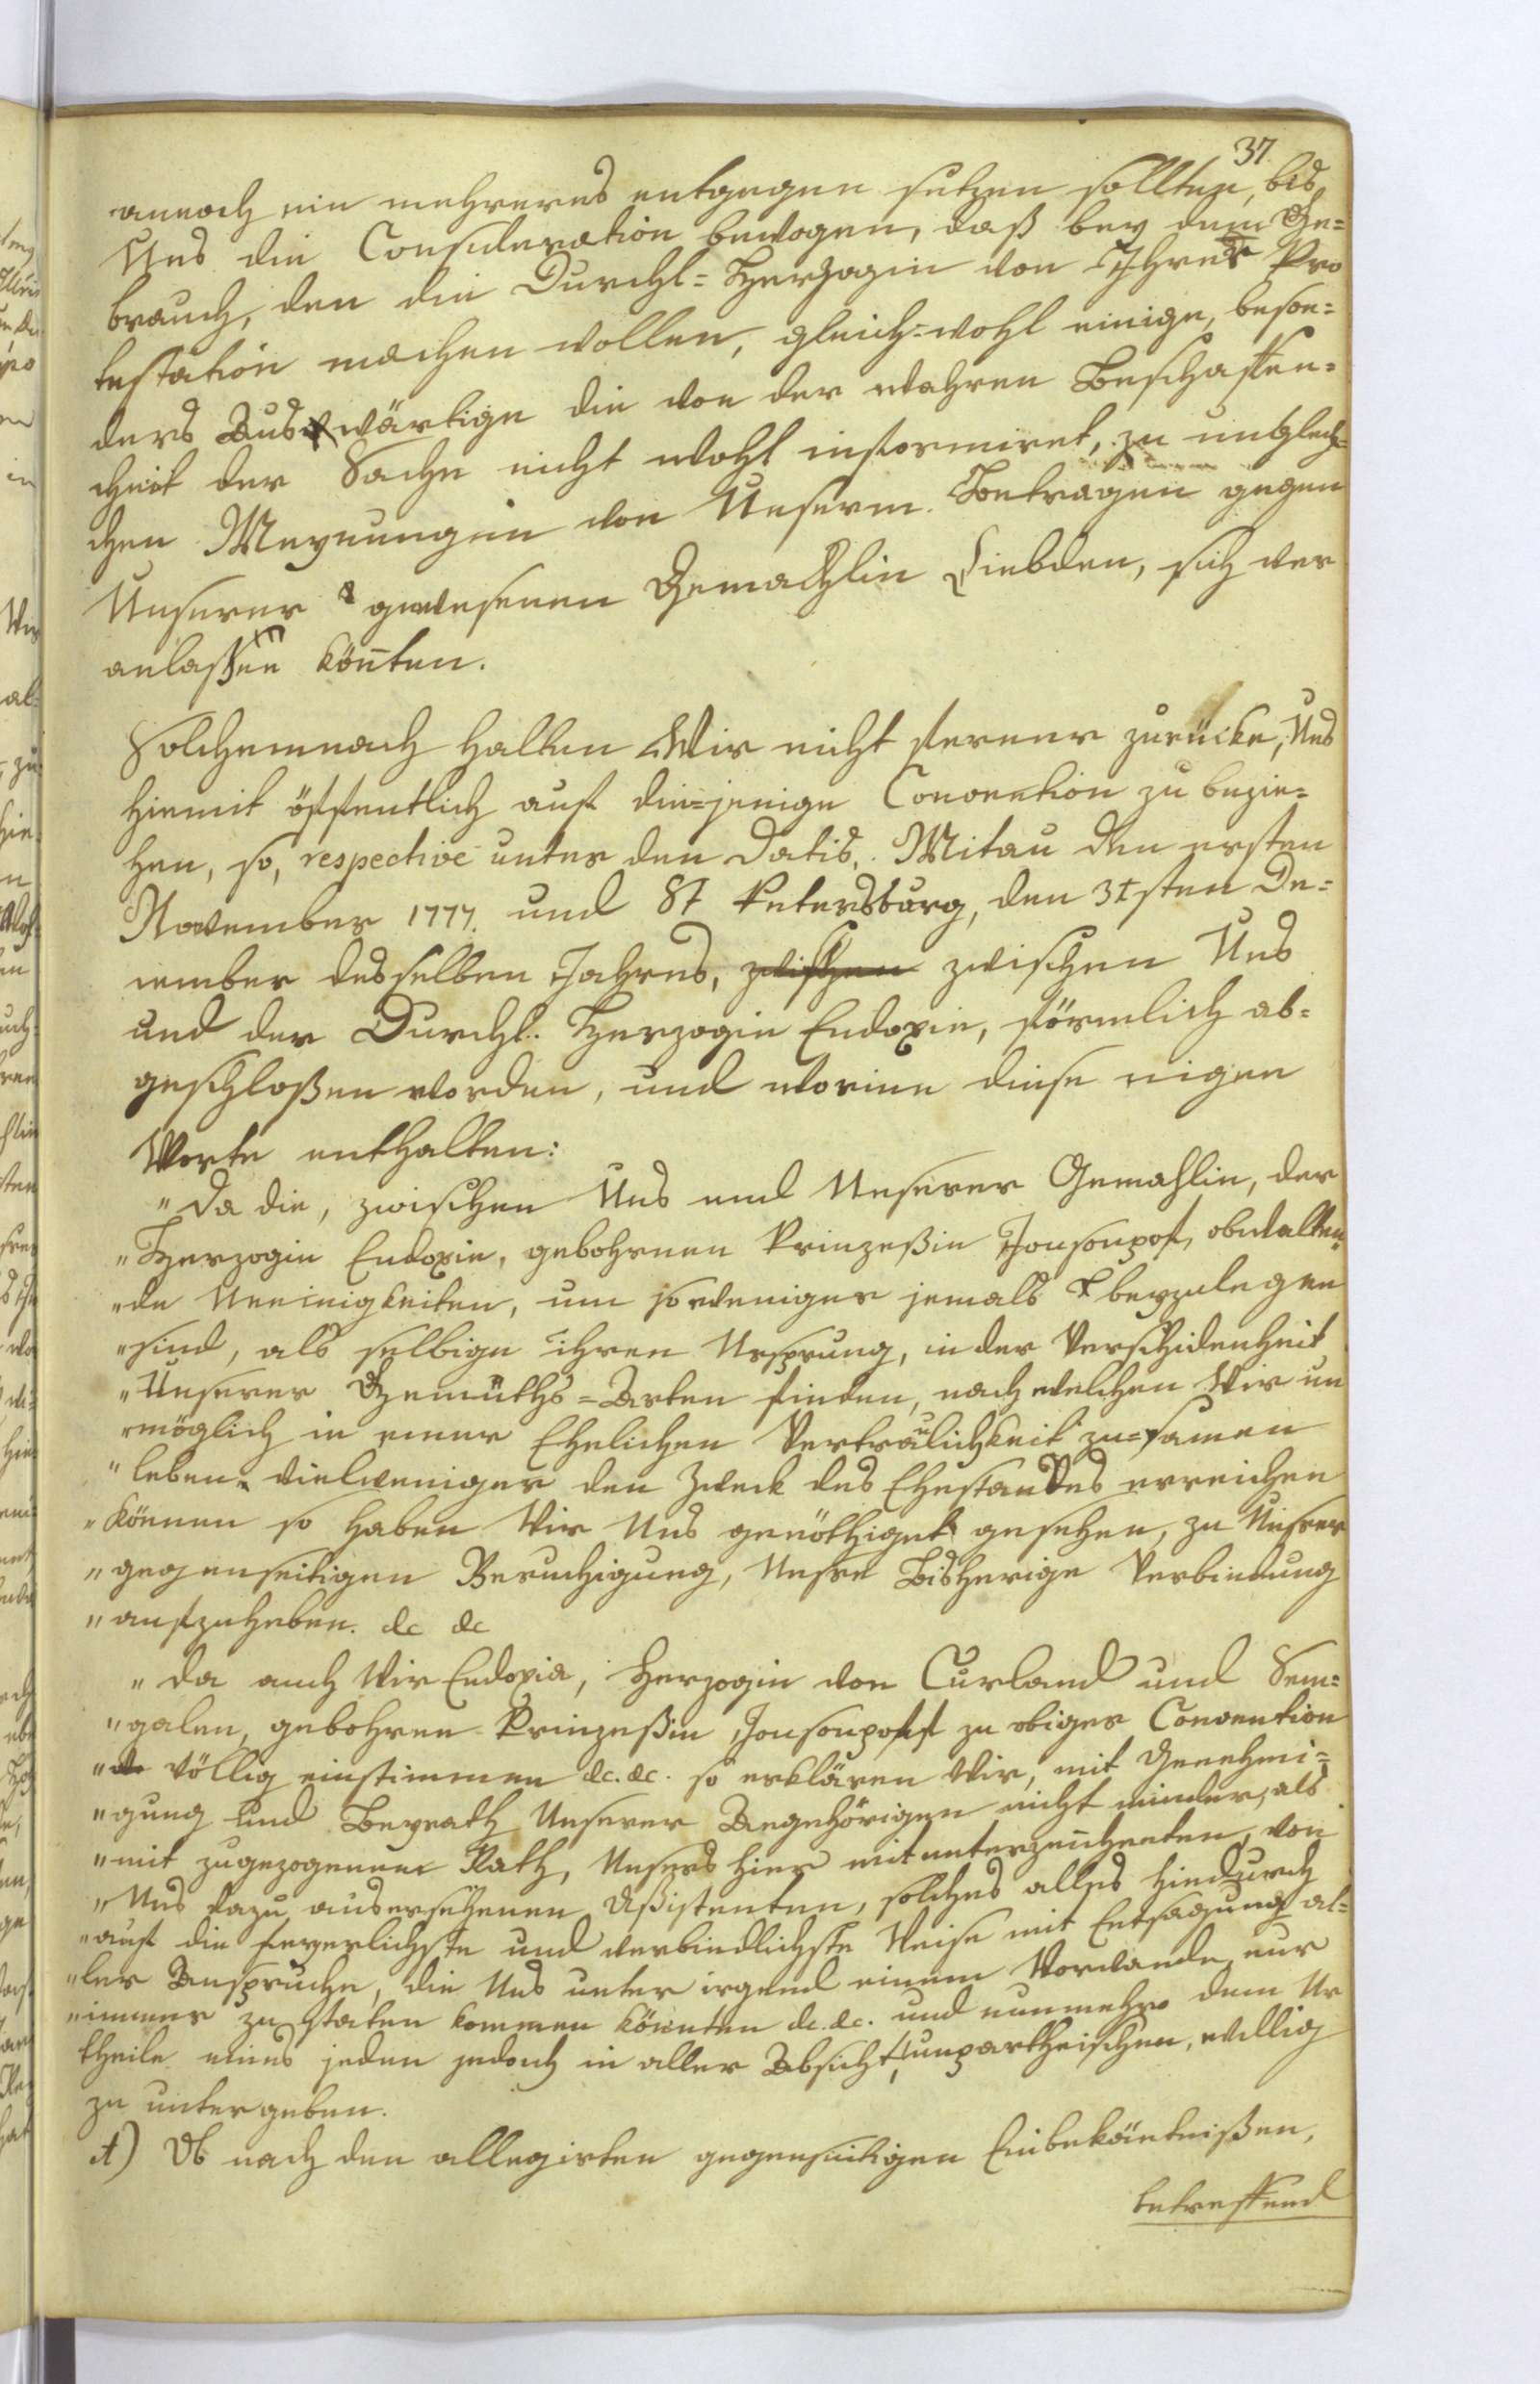 37.
annoch ein mehreres entgegen setzen sollten, bis
Uns die Consideration bewogen, daß bey dem Ge=
brauch, den die Durchl= Herzogin von Ihrer Pro
testation machen wollen, gleich=wohl einige, beson=
ders Auswärtige die von der wahren Beschaffen=
cheit der Sache nicht wohl informiret, zu unglech=
chen Meynungen von Unserm Betragen gegen
Unserer gewesenen Gemachlin Liebden, sich ver
anlassen könten.
Solchemnach halten Wir nicht ferner zurücke, Uns
hiemit öffentlich auf die=jenige Convention zu bezie=
hen, so, respective unter den Datis, Mitau den ersten
November 1777. und St Petersburg, den 31sten De=
cember desselben Jahres, zwischen zwischen Uns
und der Durchl. Herzogin Eudoxie, förmlich ab=
geschloßen worden, und worinn diese eigen
Worte enthalten:
"Da die, zwischen Uns und Unserer Gemahlin, der
"Herzogin Eudoxie, gebohrnen Prinzeßin Jousoupof, obwalten
"de Uneinigkeiten, um so weniger jemals beyzulegen
"sind, als selbige ihren Ursprung, in der Verschidenheit
"Unserer Gemüths=Arten finden, nach welchen Wir un
"möglich in einer Ehelichen Verträulichkeit zu=samen
"leben, vielweniger den Zweck des Ehestandes erreichen
"können so haben Wir Uns genöthiget gesehen, zu Unsrer
"gegenseitigen Beruhigung, Unsre Bisherige Verbindung
"aufzuheben. &c &c
"Da auch Wir Eudoxia, Herzogin von Curland und Sem=
"galen, gebohren Prinzeßin Jousoupoff zu obiger Convention
" völlig einstimmen &c. &c. so erklären Wir, mit Genehmi=
"gung und Beyrath Unserer Angehörigen nicht minder, als
"mit zugezogenem Rath, Unsers hier mit unterzeichenten, von
"Uns dazu ausersehenen Aßistenten, solches alles hiedurch
"auf die feyerlichste und verbindlichste Weise mit Entsagung al=
"ler Ansprüche, die Uns unter irgend einem Vorwande nur
"immer zu staten kommen könnten &c. &c. und nunmehro dem Ur
theile eines jeden jedoch in aller Absicht, unpartheischen, willig
zu untergeben.
A) Ob nach den allegirten gegenseitigen Einbekäntnißen,
betreffend